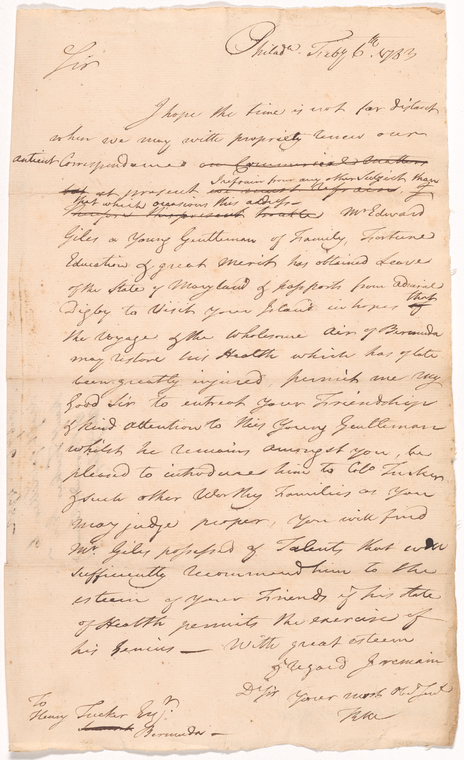 Philad.ª Feby 6th. 1783
Sir
I hope the time is not far distant
when we may with propriety renew our
antient Correspondance on Commercial Matters
I refrain from any other Subject than
but at present we must refrain, &
that which occasions this address
Mr. Edward
Giles a Young Gentleman of Family, Fortune
Education & great Merit has obtained Leave
of the State of Maryland & passports from Admiral
Digby to Visit Your Island in hopes that
the Voyage & the Wholesome Air of Bermuda
may restore his Health which has of late
been greatly injured, permit me my
good Sir to entreat Your Friendship
& kind attention to this Young Gentleman
whilst he remains amongst you, be
pleased to introduce him to Colo. Tucker
& such other Worthy Families as You
may judge proper, You will find
Mr. Giles possessed of Talents that will
sufficiently recommend him to the
esteem of Your Friends if his state
of Health permits the exercise of
his Genius — With great esteem
& regard I remain
Dr. Sir Your most Obt. Servt.
RM
To
Henry Tucker Esqr.
Bermuda —